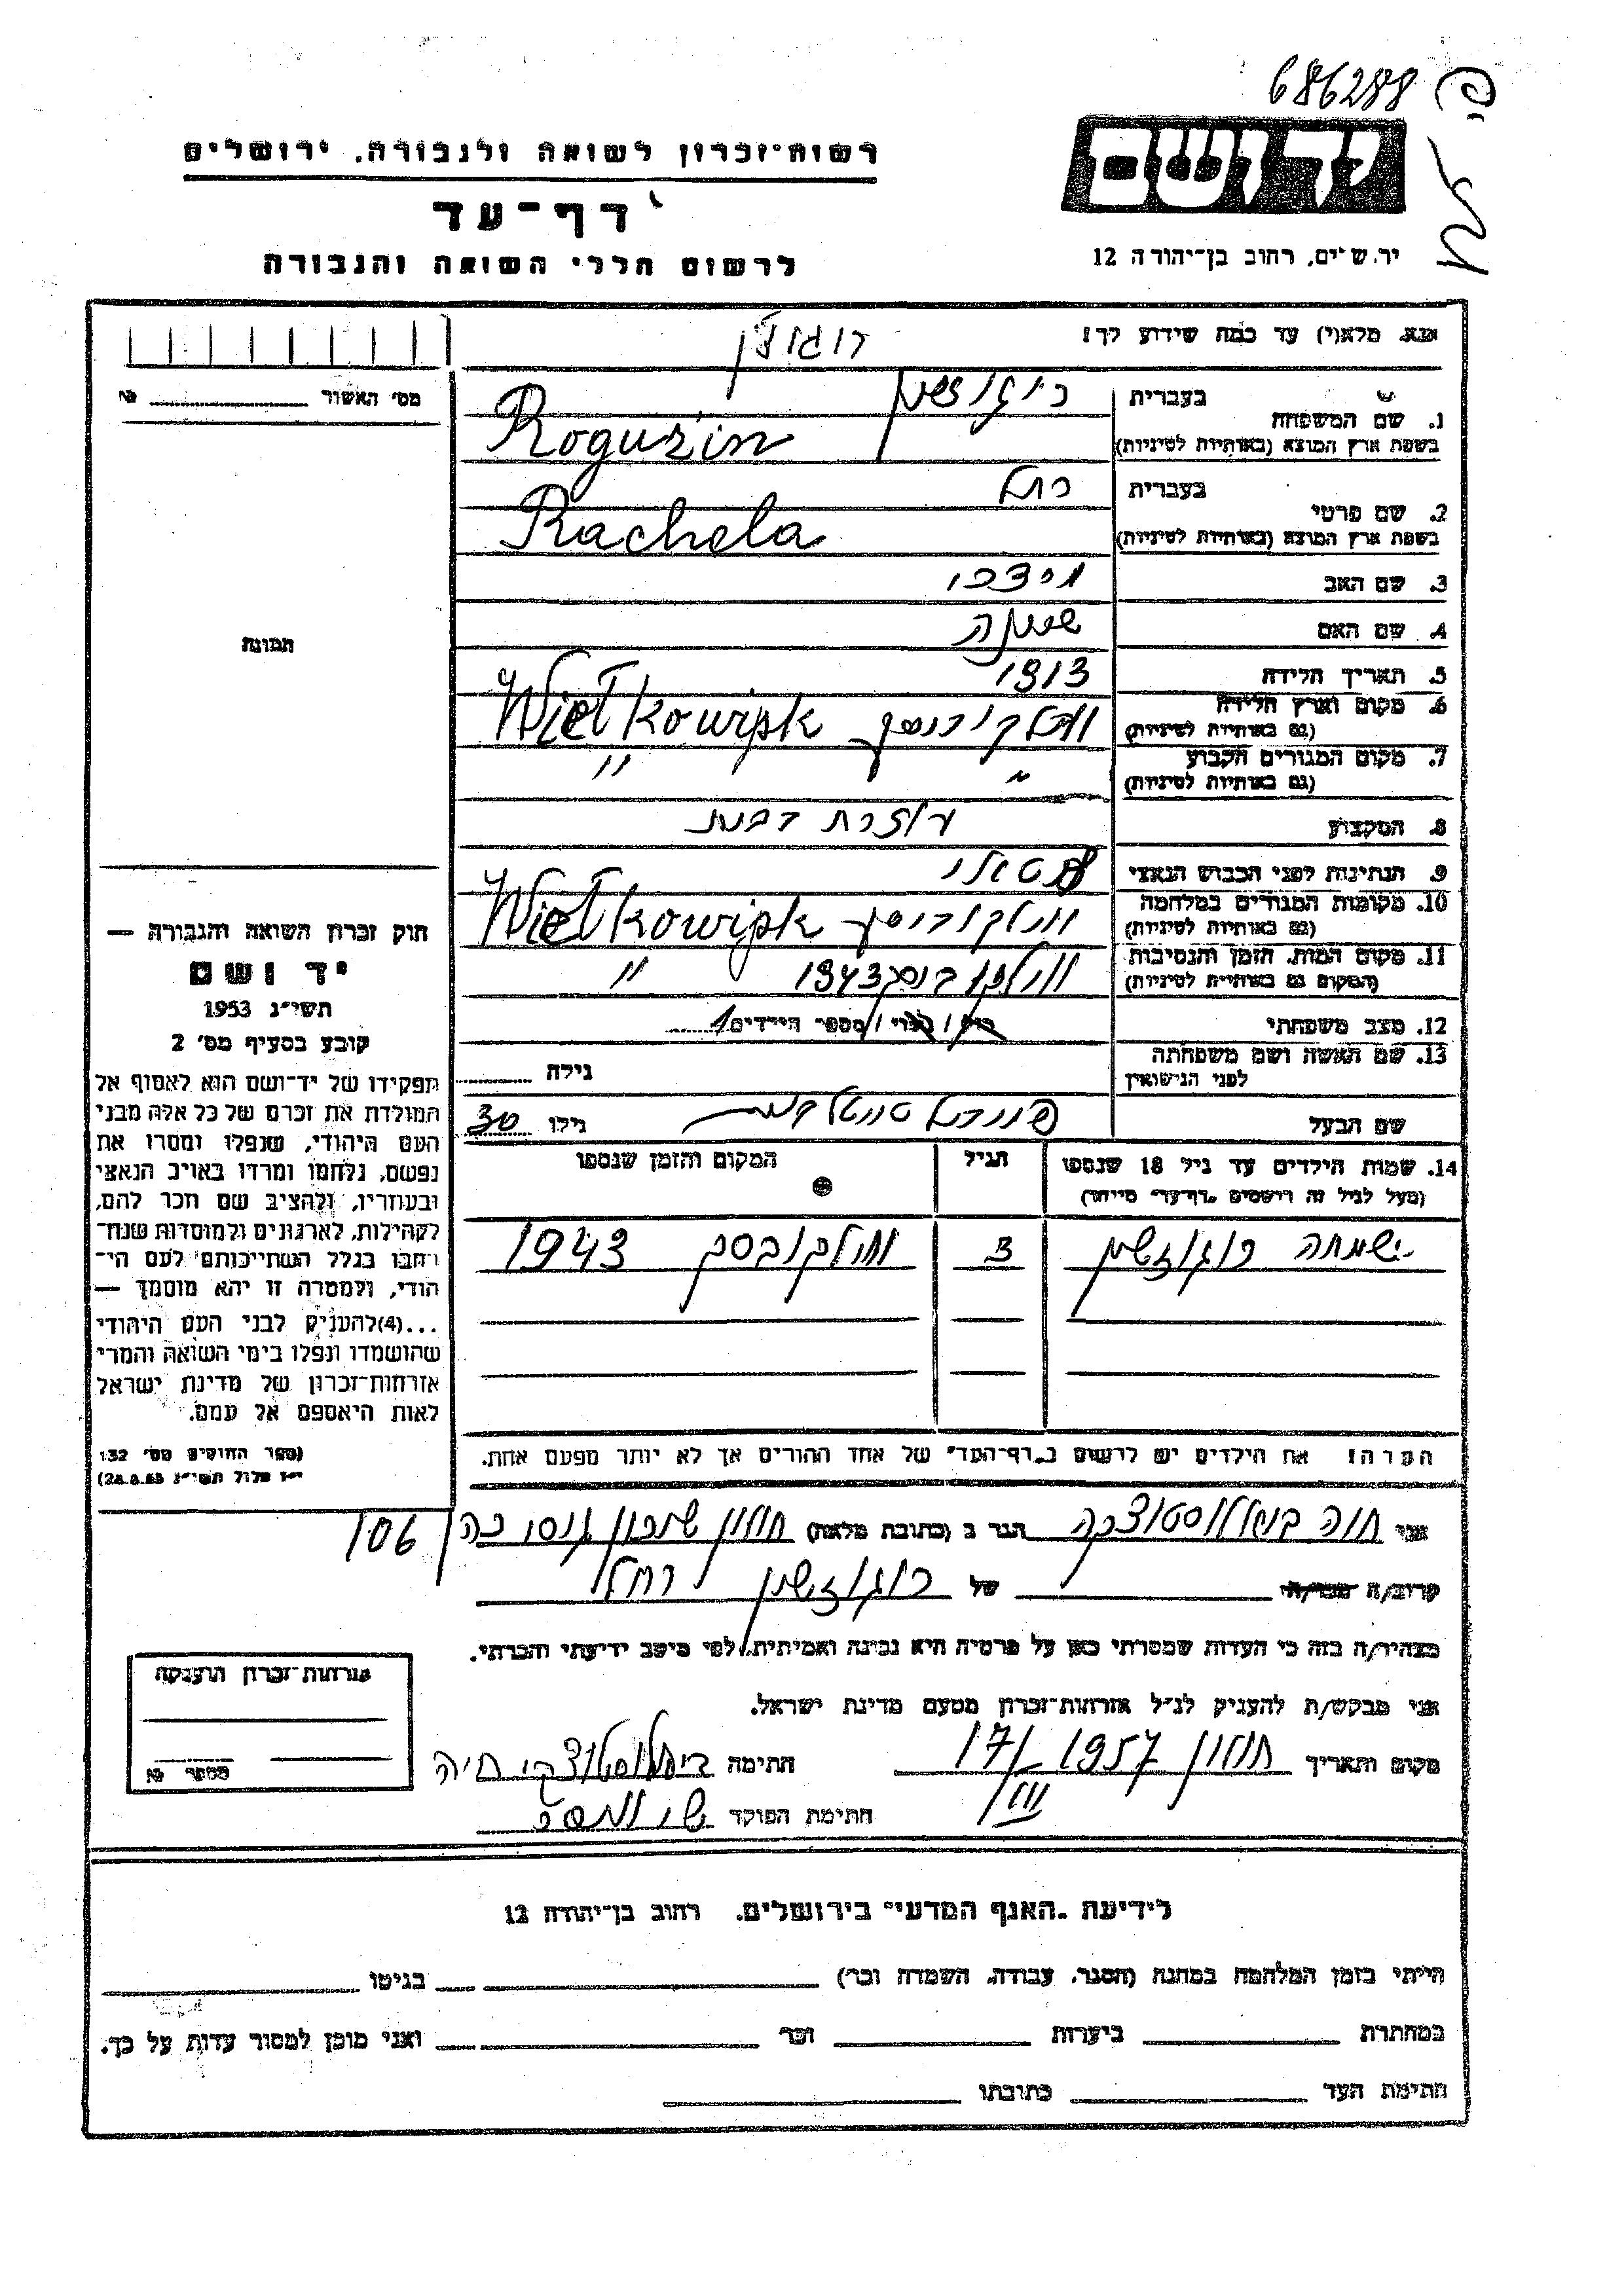 686288
יד ושם
רשות-זכרון לשואה ולגבורה, ירושלים
דף-עד
לרשום חללי השואה והגבורה
ירושלים, רחוב בן-יהודה 12
אנא, מלא(י) עד כמה שידוע לך!
רוגוזין
מס' האשור № 
1. שם המשפחה
בעברית רוגוזשין
בשפת ארץ המוצא (באותיות לטיניות) Roguzin
2. שם פרטי
בעברית רחל
בשפת ארץ המוצא (באותיות לטיניות) Rachela
3. שם האב מרדכי
4. שם האם
5. תאריך הלידה 1913
6. מקום וארץ הלידה
(גם באותיות לטיניות) Wiełkowisk
7. מקום המגורים הקבוע
(גם באותיות לטיניות) " "
8. המקצוע עוזרת
9. הנתינות לפני הכבוש הנאצי
10. מקומות המגורים במלחמה
(גם באותיות לטיניות) Wiełkowisk
11. מקום המות, הזמן והנסיבות
(המקום גם באותיות לטיניות) 1943 "
12. מצב משפחתי רווק / נשוי / מספר הילדים 1
13. שם האשה ושם משפחתה
לפני הנישואין גילה
שם הבעל גילו 30
14. שמות הילדים עד גיל 18 שנספו
(מעל לגיל זה רושמים "דף-עד" מיוחד)
הגיל
המקום והזמן שנספו
שמחה רוגוזשין 3 וולקובסק 1943
הערה! את הילדים יש לרשום ב"דף-העד" של אחד ההורים אך לא יותר מפעם אחת.
תמונה
חוק זכרון השואה והגבורה —
יד ושם
תשי"ג 1953
קובע בסעיף מס' 2
תפקידו של יד-ושם הוא לאסוף אל
המולדת את זכרם של כל אלה מבני
העם היהודי, שנפלו ומסרו את
נפשם, נלחמו ומרדו באויב הנאצי
ובעוזריו, ולהציב שם וזכר להם,
לקהילות, לארגונים ולמוסדות שנח-
רבו בגלל השתייכותם לעם הי-
הודי, ולמטרה זו יהא מוסמך —
...(4)להעניק לבני העם היהודי
שהושמדו ונפלו בימי השואה והמרי
אזרחות-זכרון של מדינת ישראל
לאות היאספם אל עמם.
(ספר החוקים מס' 132
י"ז אלול תשי"ג 28.8.53)
אני חוה הגר ב (כתובת מלאה) חולון שכון 106
קרוב/ה מכר/ה של רוגוזשין רחל
מצהיר/ה בזה כי העדות שמסרתי כאן על פרטיה היא נכונה ואמיתית, לפי מיטב ידיעתי והכרתי.
אני מבקש/ת להעניק לנ"ל אזרחות-זכרון מטעם מדינת ישראל.
מקום ותאריך חולון 17/III 1957 חתימה חיה
חתימת הפוקד
אזרחות-זכרון הוענקה
מספר №
לידיעת "האגף המדעי" בירושלים, רחוב בן-יהודה 12
הייתי בזמן המלחמה במחנה (הסגר, עבודה, השמדה וכו') בגיטו
במחתרת ביערות וכו' ואני מוכן למסור עדות על כך.
חתימת העד כתובתו